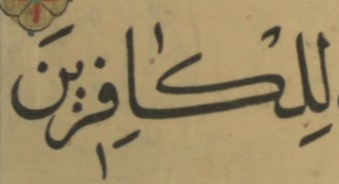 لِلْكَافِرِينَ